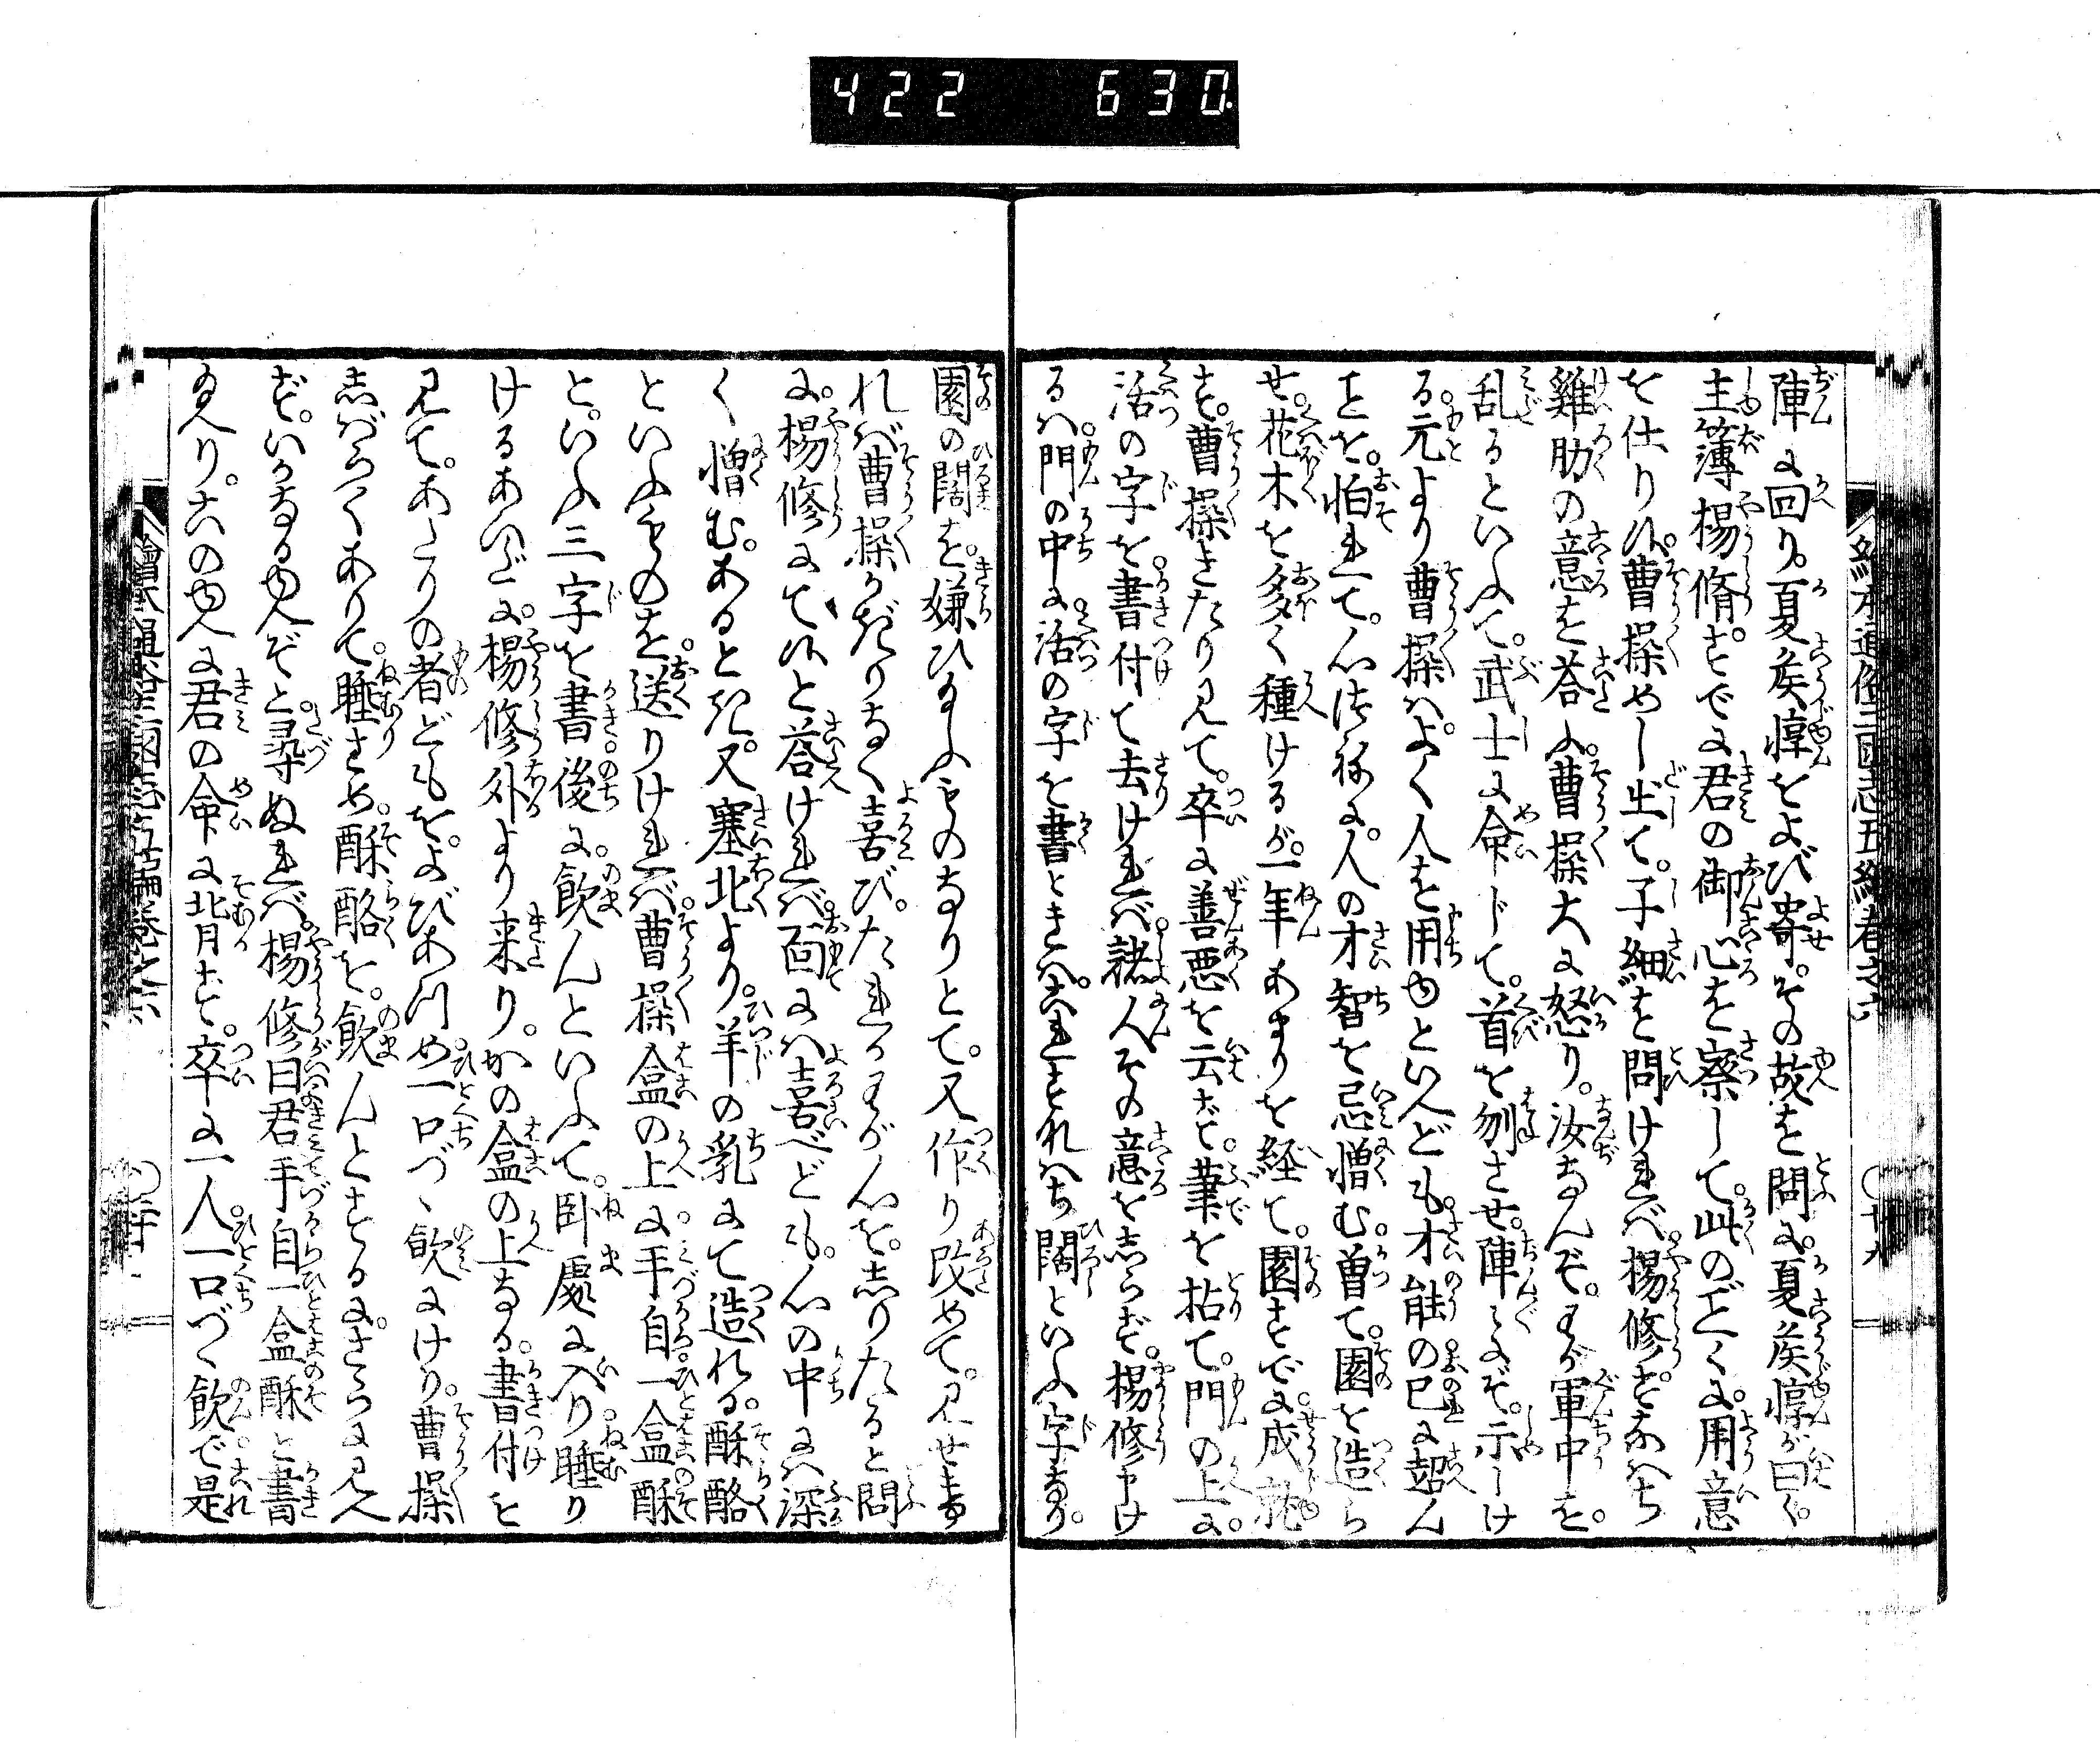 422 630
絵本通俗三国志五編巻之六 ○廿九
陣に回り。夏侯惇をよび寄。その故を問に。夏侯惇が曰く。
主簿楊脩。すでに君の御心を察して。此のごとくに。用意
を仕り候。曹操やし出て。子細を問ければ。楊修すなはち
雞肋の意を荅ふ。曹操大に怒り。汝なんぞ。わが軍中を。
乱るといふて。武士に命じて。首を刎させ。陣々に示しけ
る。元より曹操は。よく人を用ゆといへども。才能の己に超ん
ことを。怕れて。心つねに。人の才智を忌憎む。曽て。園を造ら
せ。花木を多く種けるが。一年あまりを経て。園すでに。成就
す。曹操きたり見て。卒に善悪を云ず。筆を拈て。門の上に。
活の字を。書付て去ければ。諸人その意をしらず。楊修申け
るは。門の中に。活の字を書ときは。これすなはち闊といふ字なり。
園の闊を。嫌ひ給ふものなりとて。又作り改めて。見せま
れば曹操かぎりなく喜び。たれかわが心を。しりたると問
に。楊修にて候と荅ければ。面には喜べども。心の中には深
く憎む。あるとき。又塞北より。羊の乳にて造れる。酥酪
といふものを。送りければ。曹操盒の上に。手自。一盒酥
と。いふ三字を書。後に。飲んといふて。卧處に入り。睡り
けるあいだに。楊修外より来り。かの盒の上なる。書付を
見て。あたりの者どもを。よびあつめ。一口づゝ飲にけり。曹操
しばらくありて。睡さめ。酥酪を。飲んとするに。さらに見へ
ず。いかなるゆへぞと。尋ぬれば。楊修曰。君手自一盒酥と書
給へり。このゆへに君の命に背ず。卒に一人。一口づゝ飲で。是
繪本通俗三國志五編巻之六 ○三十